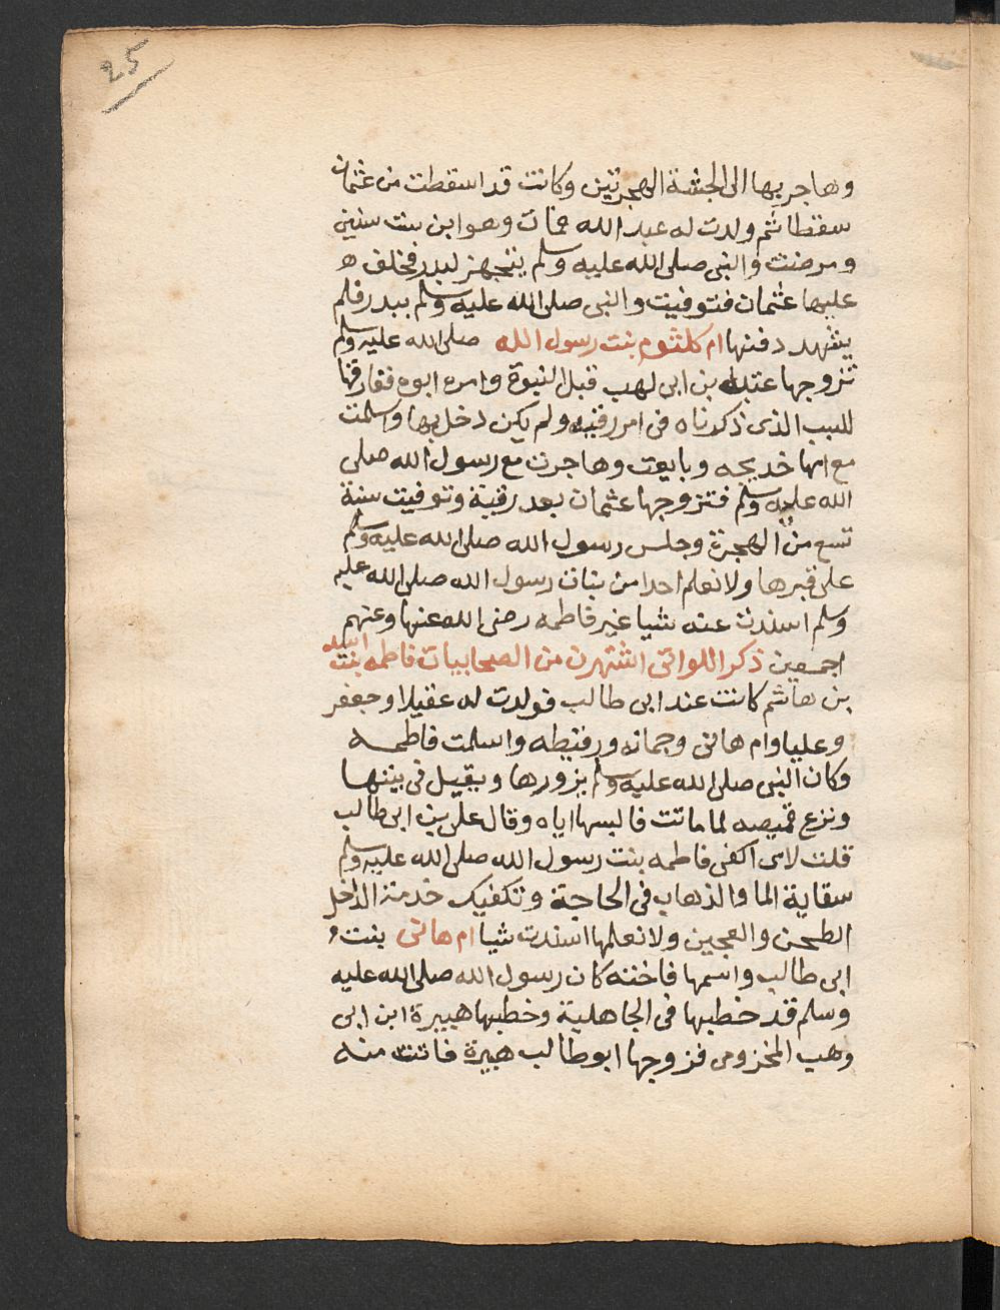 25
وهاجر بها الى الحبشة الهجرتين وكانت قد اسقطت من عثمان
سقطا ثم ولدت له عبد الله فمات وهو ابن ست سنين
ومرضت والنبى صلى الله عليه وسلم يتجهز لبدر فخلف ه
عليها عثمان فتوفيت والنبى صلى الله عليه وسلم ببدر فلم
يشهد دفنها ام كلثوم بنت رسول الله صلى الله عليه وسلم
تزوجها عتبة بن ابى لهب قبل النبوة وامره ابوه ففارقها
للسبب الذى ذكرناه فى امر رقيه ولم يكن دخل بها واسلمت
مع امها خديجه وبايعت وهاجرت مع رسول الله صلى
الله عليه وسلم فتزوجها عثمان بعد رقية وتوفيت سنة
تسع من الهجرة وجلس رسول الله صلى الله عليه وسلم
على قبرها ولا نعلم احدا من بنات رسول الله صلى الله عليه
وسلم اسندت عنه شيا غير فاطمه رضى الله عنها وعنهم
اجمعين ذكر اللواتى اشتهرن من الصحابيات فاطمه بنت اسد
بن هاشم كانت عند ابى طالب فولدت له عقيلا وجعفر
وعليا وام هانى وجمانه وريطه واسلمت فاطمه
وكان النبى صلى الله عليه وسلم يزورها ويقيل فى بيتها
ونزع قميصه لما ماتت فالبسها اياه وقال على بن ابى طالب
قلت لامى اكفى فاطمه بنت رسول الله صلى الله عليه وسلم
سقاية الما والذهاب فى الحاجة وتكفيك خدمة الداخل
الطحن والعجين ولا نعلمها اسندت شيا ام هانى بنت
ابى طالب واسمها فاخته كان رسول الله صلى الله عليه
وسلم قد خطبها فى الجاهلية وخطبها هبيرة ابن ابى
وهب المخزومى فزوجها ابو طالب هبيرة فاتت منه